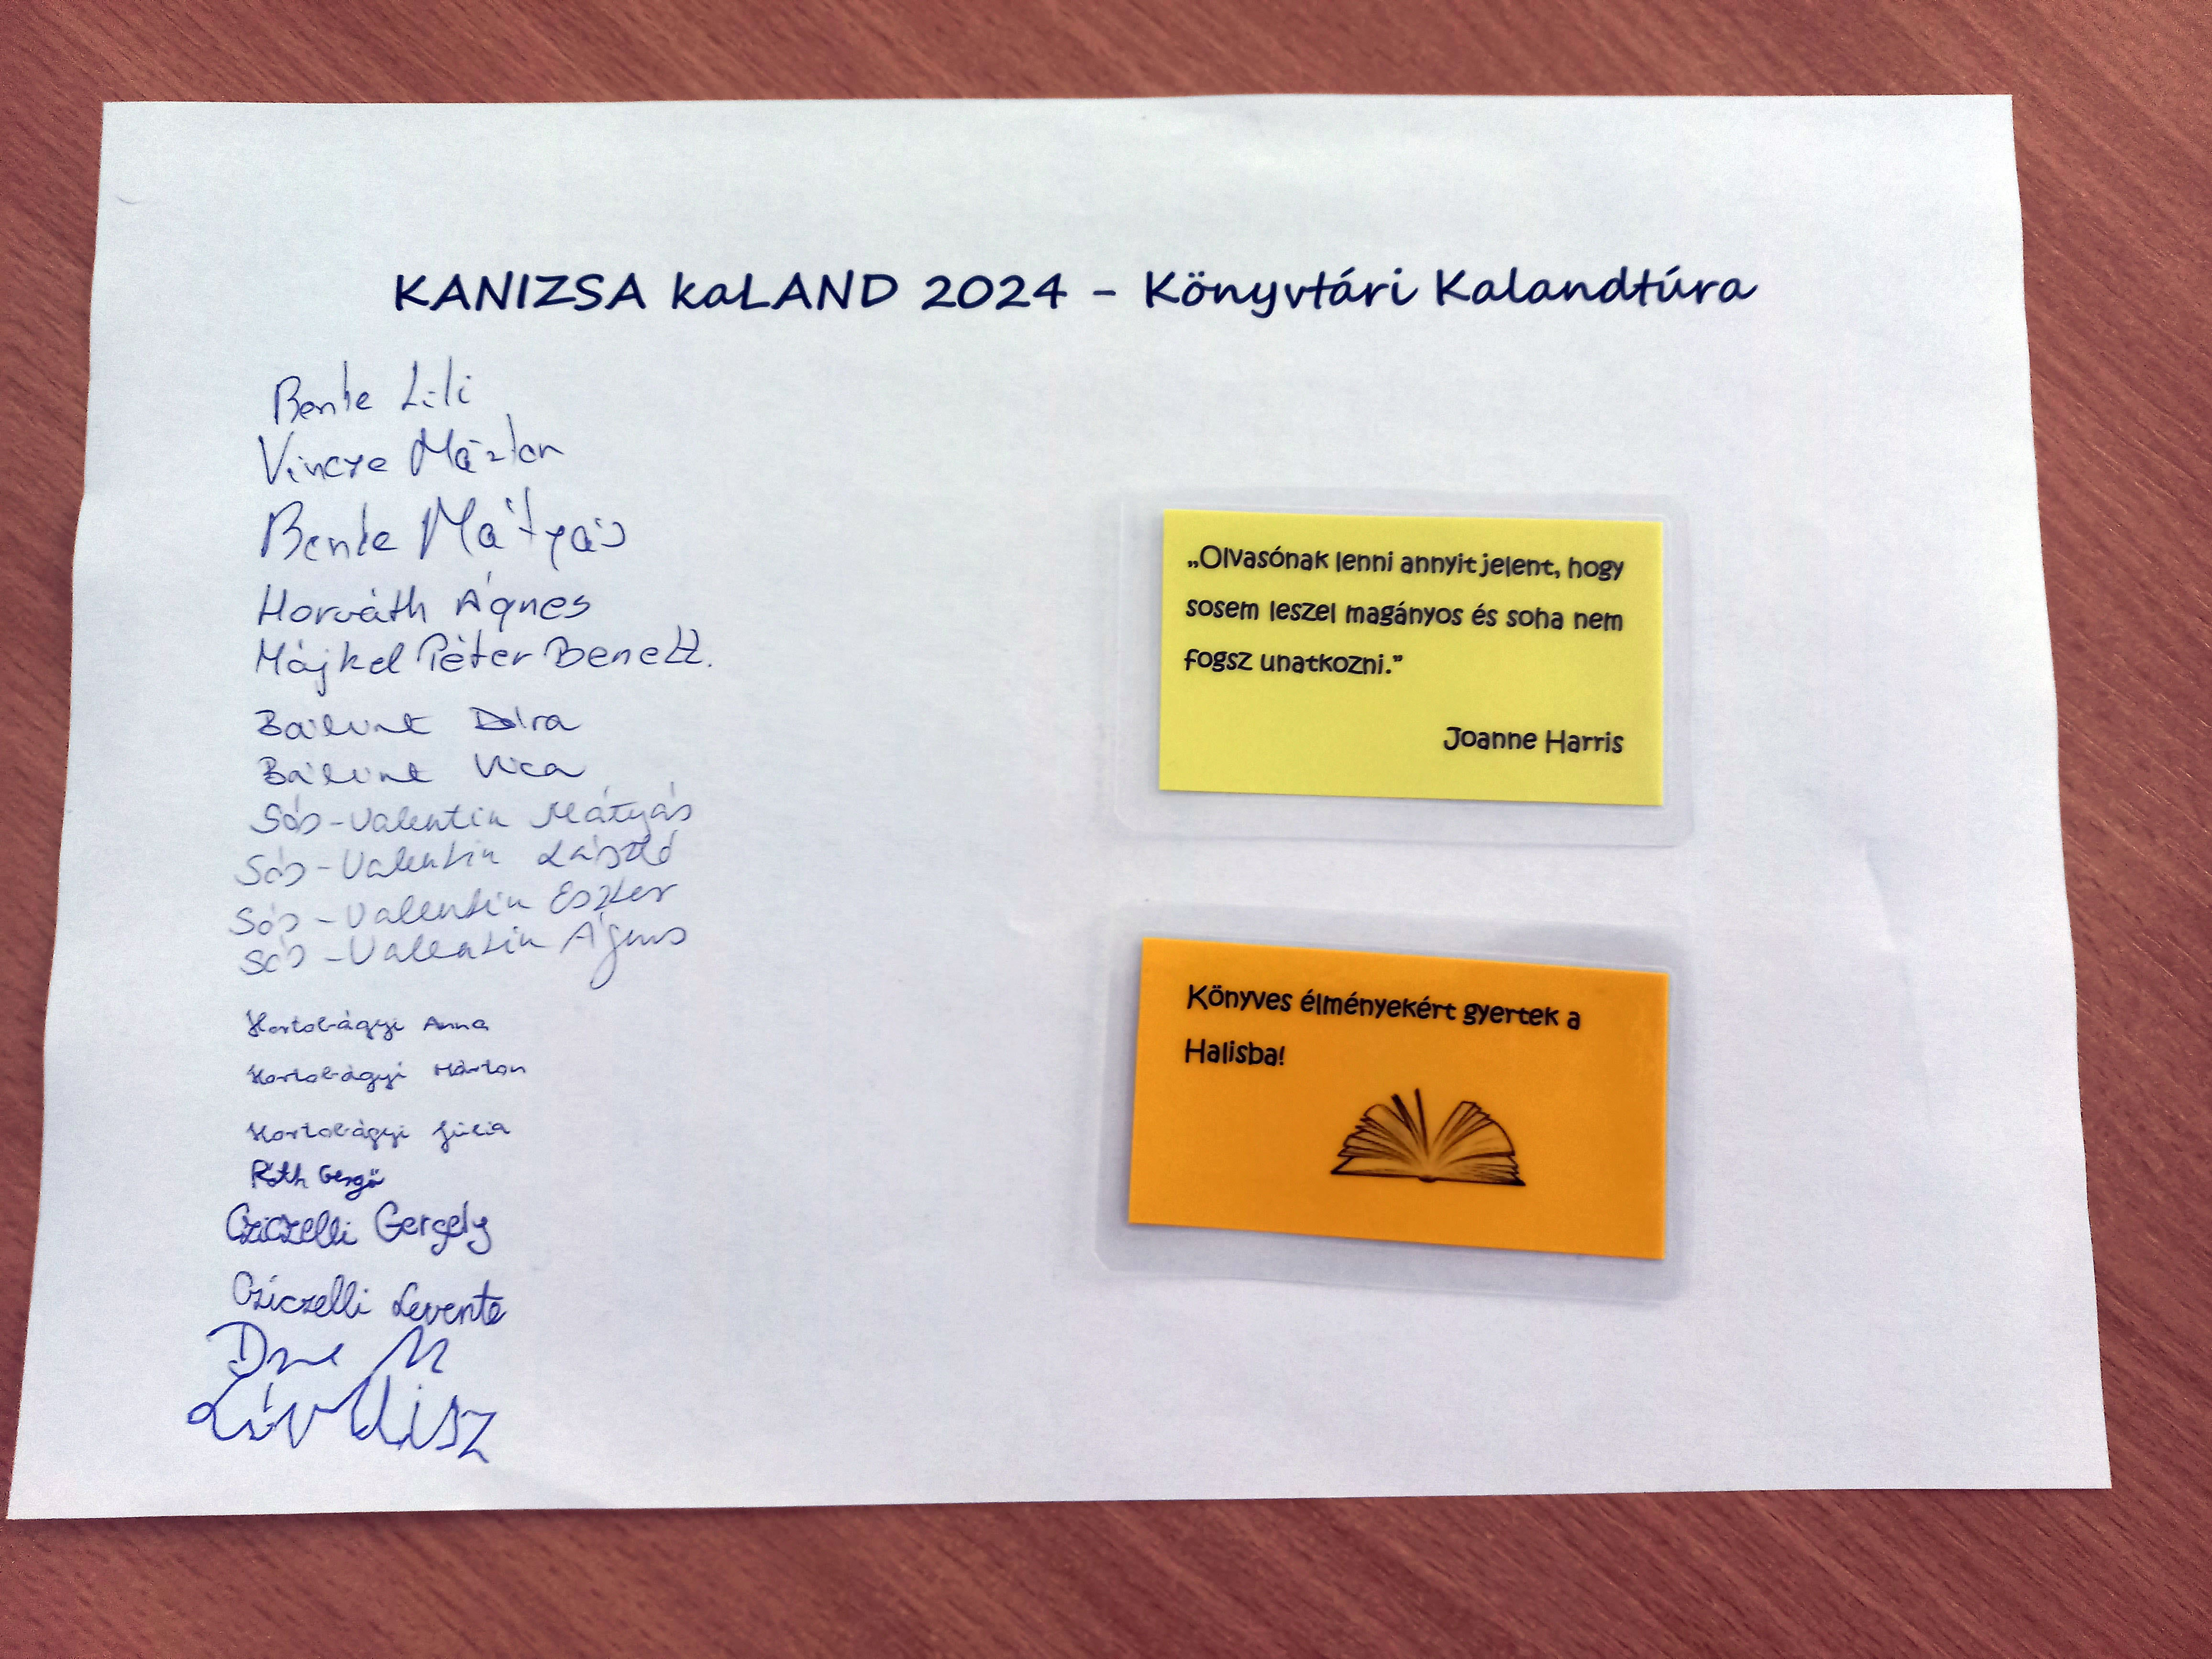 KANIZSA kaLAND 2024 - Könyvtári Kalandtúra
Bente Lili
Vincze Márton
Bente Mátyás
Horváth Ágnes
Májkel Péter Benett.
Bálint Dóra
Bálint Vica
Sós-Valentin Mátyás
Sós-Valentin László
Sós-Valentin Eszter
Sós-Valentin Ágnes
Hortobágyi Anna
Hortobágyi Márton
Hortobágyi Júlia
Róth Gergő
Cziczelli Gergely
Cziczelli Levente
„Olvasónak lenni annyit jelent, hogy
sosem leszel magányos és soha nem
fogsz unatkozni.”
Joanne Harris
Könyves élményekért gyertek a
Halisba!